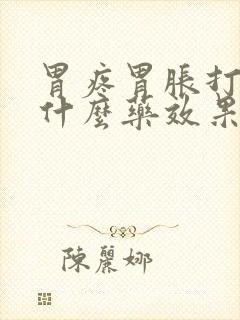 胃疼胃脹打
什麼藥效果
陳麗娜